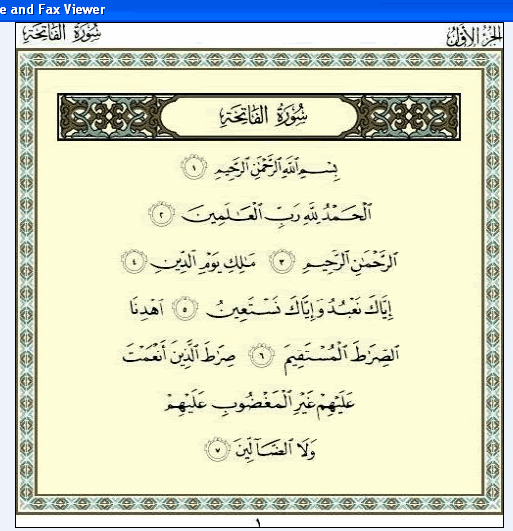 e and Fax Viewer
الجزء الأول سورة الفاتحة
سُورَةُ الفَاتِحَةِ
بِسْمِ ٱللَّهِ ٱلرَّحْمَٰنِ ٱلرَّحِيمِ ١
ٱلْحَمْدُ لِلَّهِ رَبِّ ٱلْعَٰلَمِينَ ٢
ٱلرَّحْمَٰنِ ٱلرَّحِيمِ ٣ مَٰلِكِ يَوْمِ ٱلدِّينِ ٤
إِيَّاكَ نَعْبُدُ وَإِيَّاكَ نَسْتَعِينُ ٥ ٱهْدِنَا
ٱلصِّرَٰطَ ٱلْمُسْتَقِيمَ ٦ صِرَٰطَ ٱلَّذِينَ أَنْعَمْتَ
عَلَيْهِمْ غَيْرِ ٱلْمَغْضُوبِ عَلَيْهِمْ
وَلَا ٱلضَّآلِّينَ ٧
١